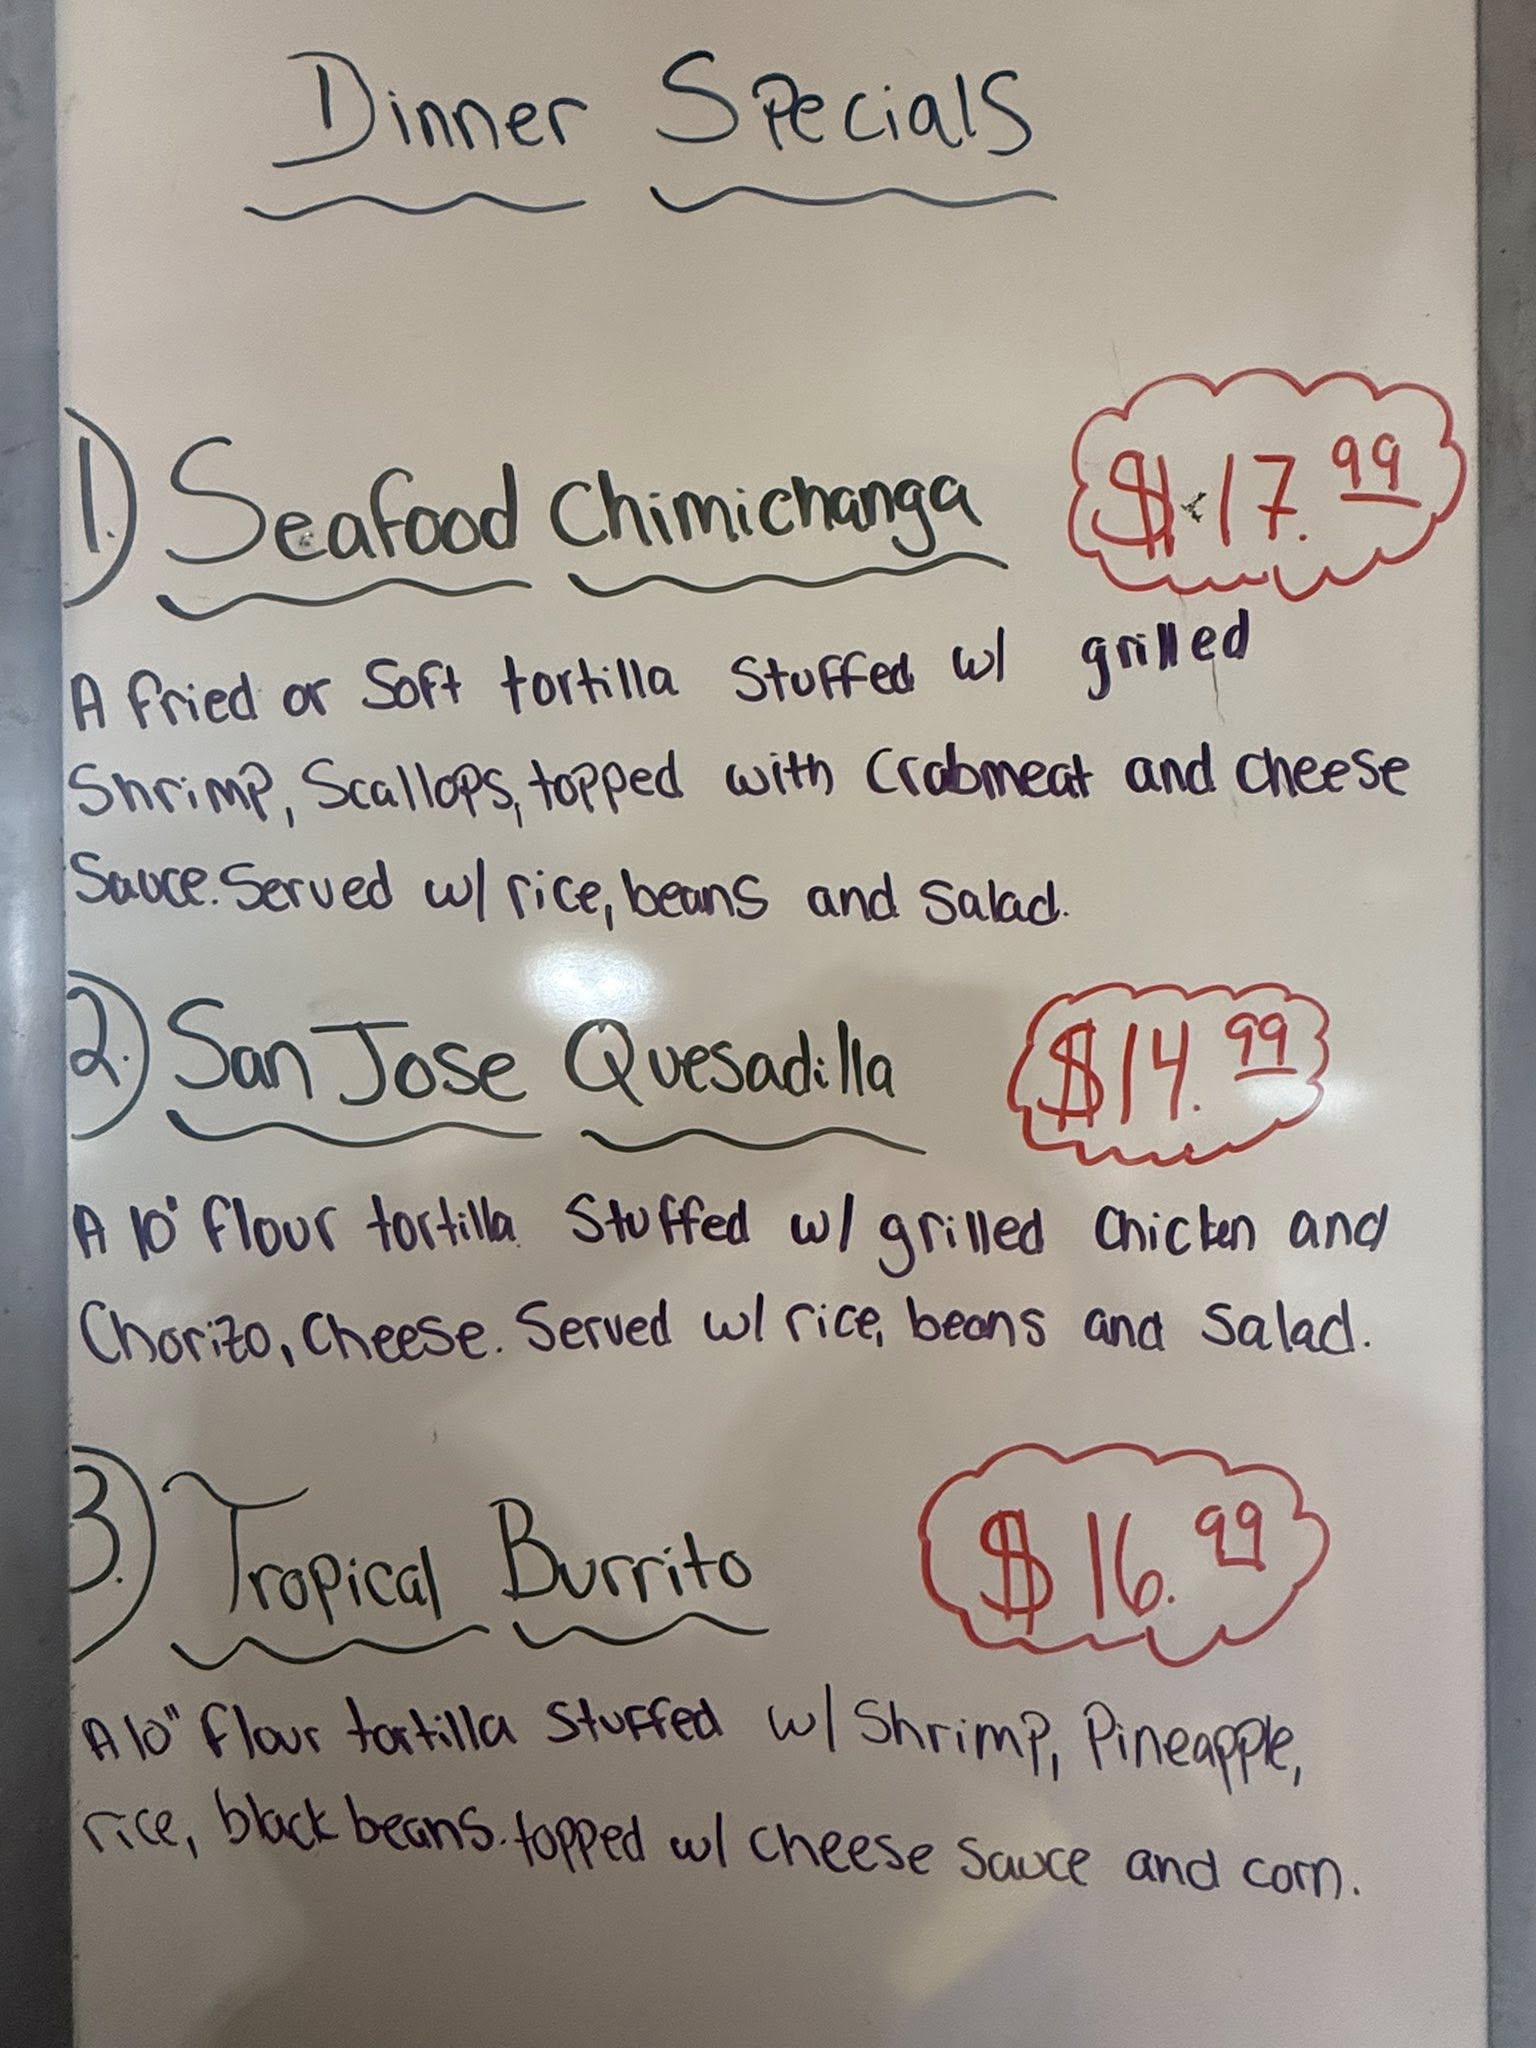 Dinner Specials
1.) Seafood Chimichanga $17.99
A fried or Soft tortilla Stuffed w/ grilled
Shrimp, Scallops, topped with Crabmeat and cheese
Sauce. Served w/ rice, beans and Salad.
2.) San Jose Quesadilla $14.99
A 10" flour tortilla Stuffed w/ grilled Chicken and
Chorizo, Cheese. Served w/ rice, beans and Salad.
3.) Tropical Burrito $16.99
A 10" flour tortilla Stuffed w/ Shrimp, Pineapple,
rice, black beans. topped w/ cheese sauce and corn.